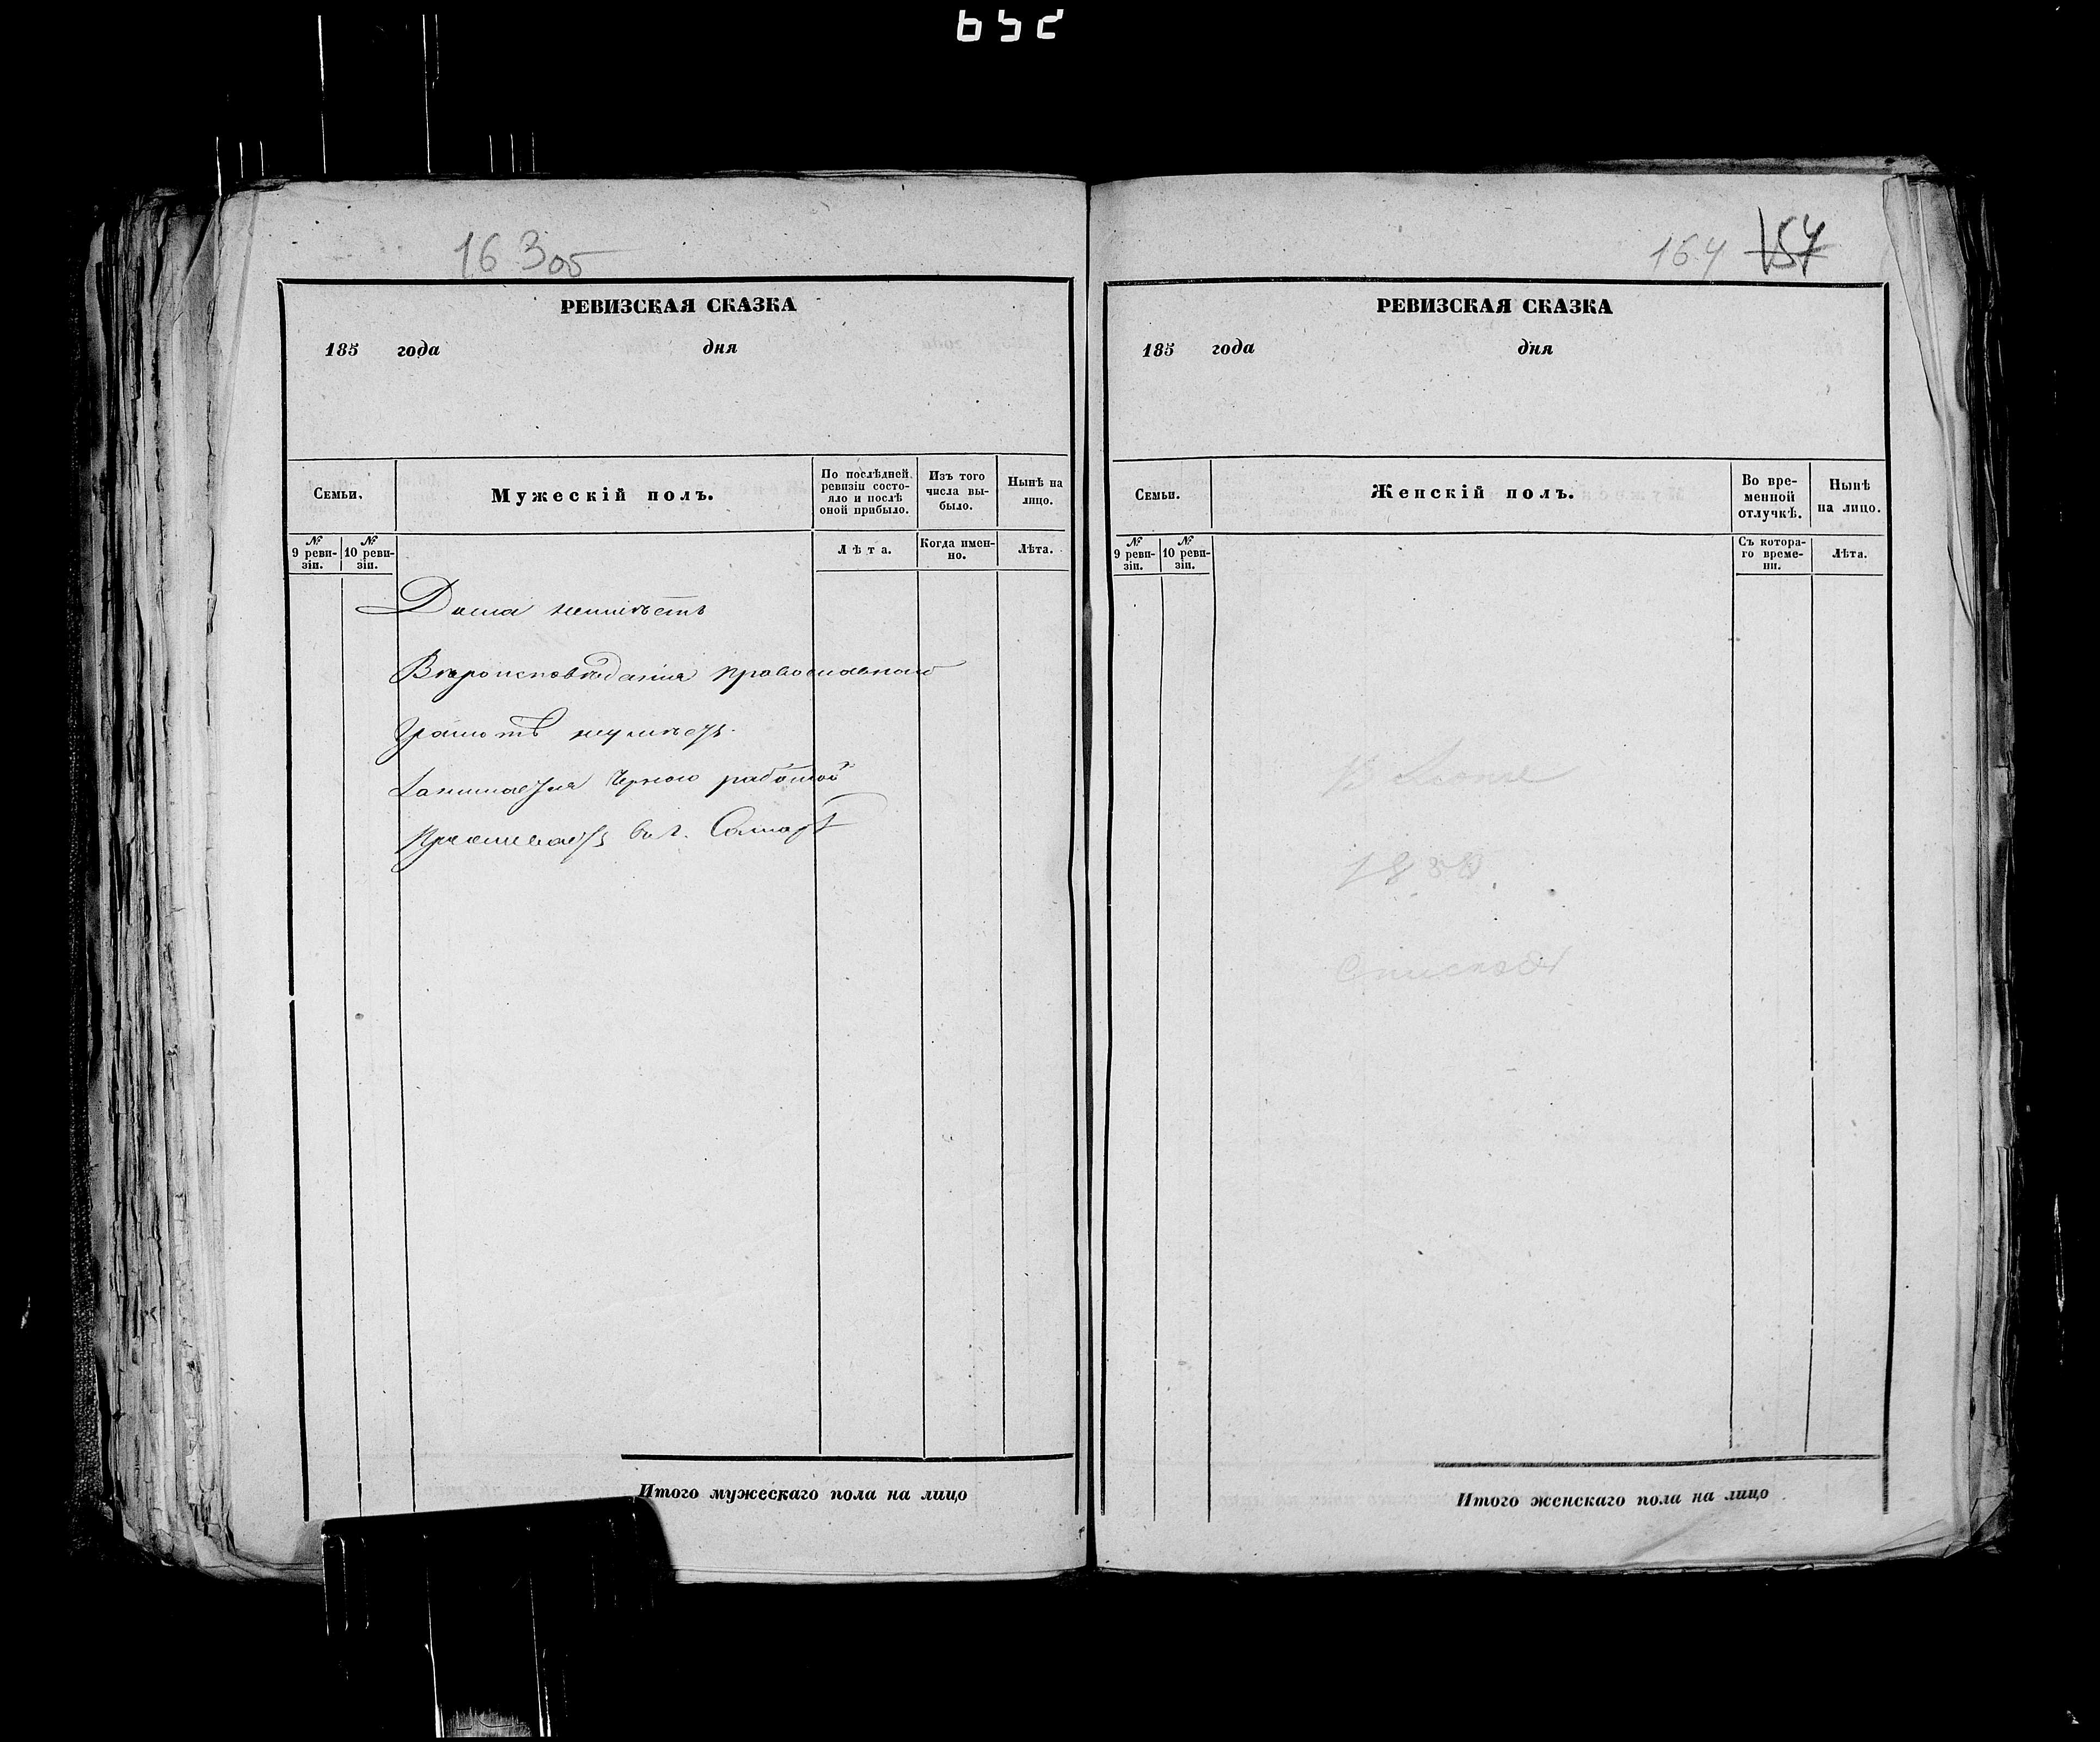 652
163об
РЕВИЗСКАЯ СКАЗКА
185 года дня
Семьи.
Мужескій полъ.
По послѣдней ревизіи состояло и послѣ оной прибыло.
Изъ того числа выбыло.
Нынѣ на лицо.
№ 9 ревизіи.
№ 10 ревизіи.
Лѣта.
Когда именно.
Лѣта.
Дома неимѣетъ
Вѣроисповѣданія православнаго
Грамотѣ неумѣетъ.
Занимается Черною работою
Проживаетъ въ г. Самарѣ
Итого мужескаго пола на лицо
164 157
РЕВИЗСКАЯ СКАЗКА
185 года дня
Семьи.
Женскій полъ.
Во временной отлучкѣ.
Нынѣ на лицо.
№ 9 ревизіи.
№ 10 ревизіи.
Съ котораго времени.
Лѣта.
1858
Итого женскаго пола на лицо